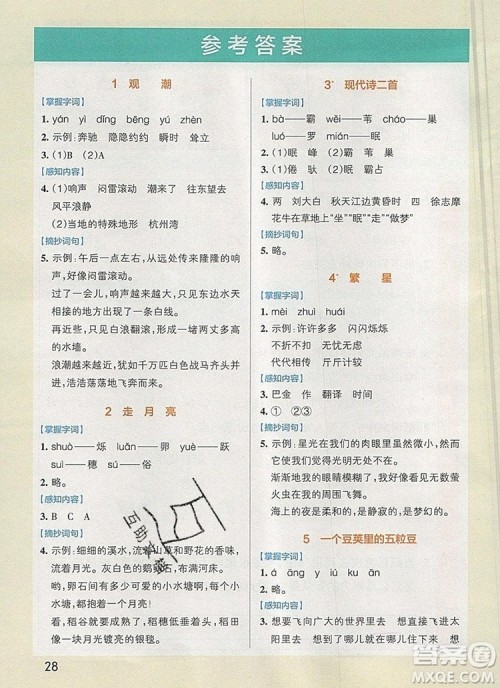 参考答案
1 观 潮
【掌握字词】
1. yán yì dǐng bēng yú zhèn
2. 示例:奔驰 隐隐约约 瞬时 耸立
3. (1)B (2)A
【感知内容】
4. (1)响声 闷雷滚动 潮来了 往东退去
风平浪静
(2)当地的特殊地形 杭州湾
【摘抄词句】
5. 示例:午后一点左右,从远处传来隆隆的响
声,好像闷雷滚动。
过了一会儿,响声越来越大,只见东边水天
相接的地方出现了一条白线。
再近些,只见白浪翻滚,形成一堵两丈多高
的水墙。
浪潮越来越近,犹如千万匹白色战马齐头并
进,浩浩荡荡地飞奔而来。
2 走 月 亮
【掌握字词】
1. shuò——烁 luǎn——卵 yuè——跃
suì——穗 sú——俗
2. 略。
【感知内容】
3. B C A
【摘抄词句】
4. 示例:细细的溪水,流着山草和野花的香味,
流着月光。灰白色的鹅卵石布满河床。
哟,卵石间有多少可爱的小水塘啊,每个小
水塘都抱着一个月亮!
看,稻谷就要成熟了,稻穗低垂着头,稻田
像一块月光镀亮的银毯。
3* 现代诗二首
【掌握字词】
1. bà——霸 wěi——苇 cháo——巢
luó——罗 mián——眠
2. (1)眠 (2)霸 苇 巢
3. (1)倦 驮 (2)眠 霸占
【感知内容】
4. 两 刘大白 秋天江边黄昏时 四 徐志摩
花牛在草地上“坐”“眠”“走”“做梦”
【摘抄词句】
5. 略。
4* 繁 星
【掌握字词】
1. mèi zhuì huái
2. 示例:许许多多 闪闪烁烁
无忧无虑 不折不扣
代代相传 斤斤计较
【感知内容】
3. 巴金 作家 翻译 时间
4. ① ②③
【摘抄词句】
5. 示例:星光在我们的肉眼里虽然微小,然而
它使我们觉得光明无处不在。
渐渐地我的眼睛模糊了,我好像看见无数萤
火虫在我的周围飞舞。
海上的夜是柔和的,是静寂的,是梦幻的。
5 一个豆荚里的五粒豆
【掌握字词】
1. á āng yí kù ku
2. 略。
【感知内容】
3. 想要飞向广大的世界里去 想直接飞进太
阳里去 想到了哪儿就在哪儿住下来 想
28
互助文档
答案圈
MXQE.COM